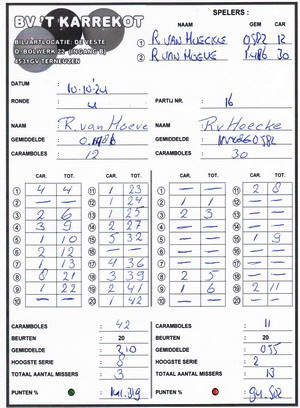 BV 'T KARREKOT
BILJARTLOCATIE: DE VESTE
O. BOLWERK 22 (INGANG B)
4531GV TERNEUZEN
SPELERS :
NAAM GEM CAR
1 R VAN HOECKE 0582 12
2 R VAN HOEVE 1486 30
DATUM : 10-10-24
RONDE : 4 PARTIJ NR. : 16
NAAM : R. van Hoeve NAAM : R v Hoecke
GEMIDDELDE : GEMIDDELDE :
CARAMBOLES : 12 CARAMBOLES : 30
CAR. TOT. CAR. TOT. CAR. TOT. CAR. TOT.
1 4 4 11 1 23 1 — — 11 2 8
2 — — 12 1 24 2 1 1 12 — —
3 2 6 13 1 25 3 2 3 13 — —
4 3 9 14 2 27 4 — — 14 — —
5 1 10 15 5 32 5 — — 15 1 9
6 2 12 16 — — 6 — — 16 — —
7 1 13 17 4 36 7 — — 17 — —
8 8 21 18 3 39 8 2 5 18 — —
9 1 22 19 2 41 9 1 6 19 2 11
10 — — 20 1 42 10 — — 20 — —
CARAMBOLES : 42 CARAMBOLES : 11
BEURTEN : 20 BEURTEN : 20
GEMIDDELDE : 210 GEMIDDELDE : 055
HOOGSTE SERIE : 8 HOOGSTE SERIE : 2
TOTAAL AANTAL MISSERS : 3 TOTAAL AANTAL MISSERS : 13
PUNTEN % PUNTEN %